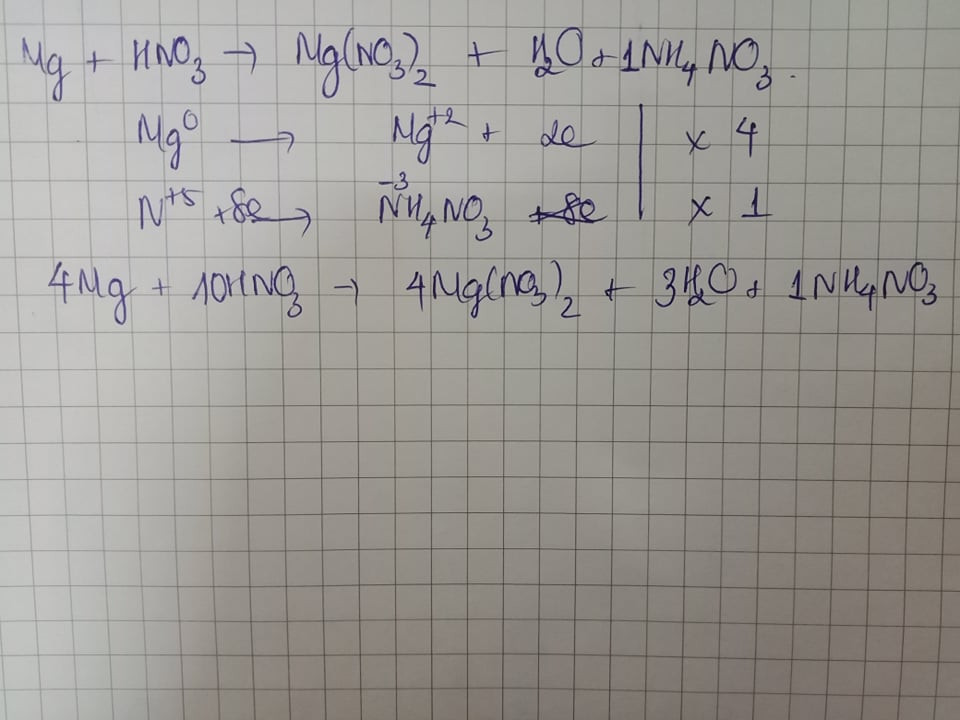 Mg + HNO₃ → Mg(NO₃)₂ + H₂O + 1NH₄NO₃.
Mg⁰ → Mg⁺² + 2e | x 4
N⁺⁵ + 8e → N⁻³H₄NO₃ +8e | x 1
4Mg + 10HNO₃ → 4Mg(NO₃)₂ + 3H₂O + 1NH₄NO₃